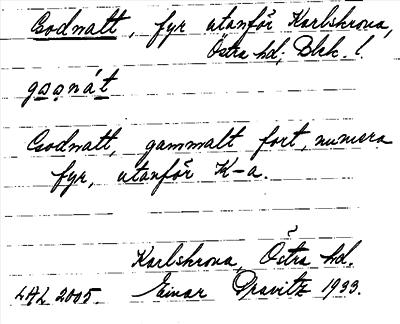 Csodnatt, fyr utanför Karlskrona,
Östra hd, Blek. l.
gȯsnát
Csodnatt, gammalt fort, numera
fyr, utanför K-a.
Karlskrona, Östra hd.
LAL 2005. Einar Granitz 1933.